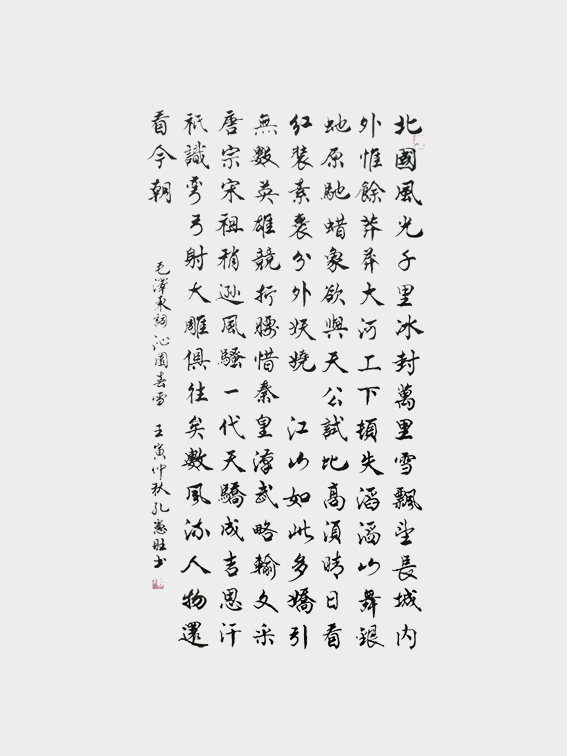 北國風光千里冰封萬里雪飄望長城内
外惟餘莽莽大河上下頓失滔滔山舞銀
虵原馳蜡象欲與天公試比高須晴日看
紅装素裹分外妖嬈 江山如此多嬌引
無數英雄競折腰惜秦皇漢武略輸文采
唐宗宋祖稍遜風騷一代天驕成吉思汗
祇識彎弓射大雕俱往矣數風流人物還
看今朝
毛澤東詞沁園春雪 壬寅仲秋孔憲胜书